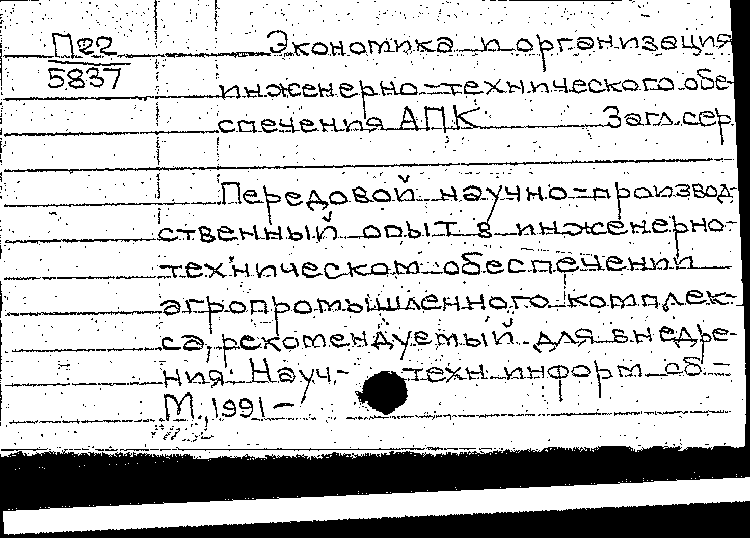 П22
5837
Экономика и организация
инженерно-технического обе-
спечения АПК. Загл.сер.
Передовой научно-производ-
ственный опыт в инженерно-
техническом обеспечении
агропромышленного комплек-
са, рекомендуемый для внедре-
ния: Науч.- техн. информ. сб. -
М., 1991 -